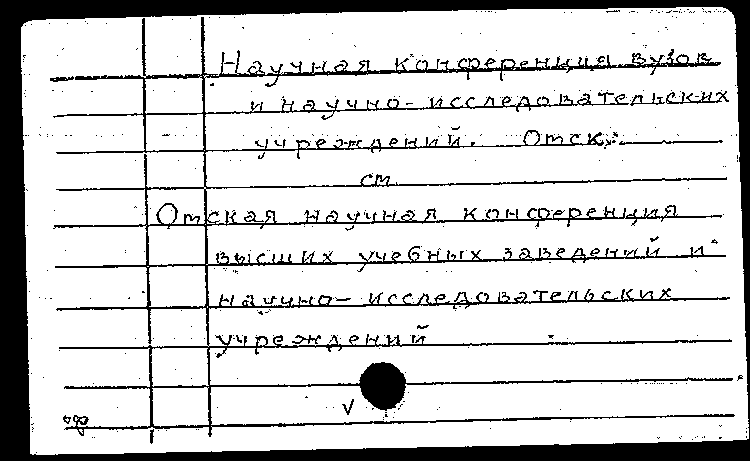 Научная конференция вузов
и научно-исследовательских
учреждений. Отск.
см.
Отская научная конференция
высших учебных заведений и
научно-исследовательских
учреждений
V